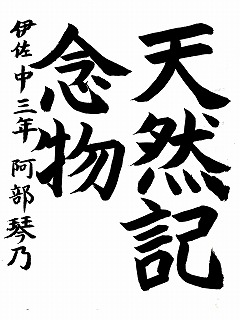 天然記
念物
伊佐中三年 阿部琴乃